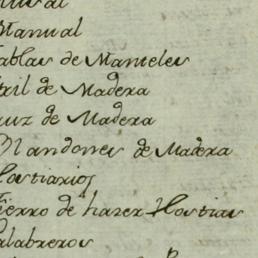 Manual
ablas de Manteles
tril de Madera
ruz de Madera
Blandones de Madera
Hostiarios
ierro de hazer Hostias
alabreros